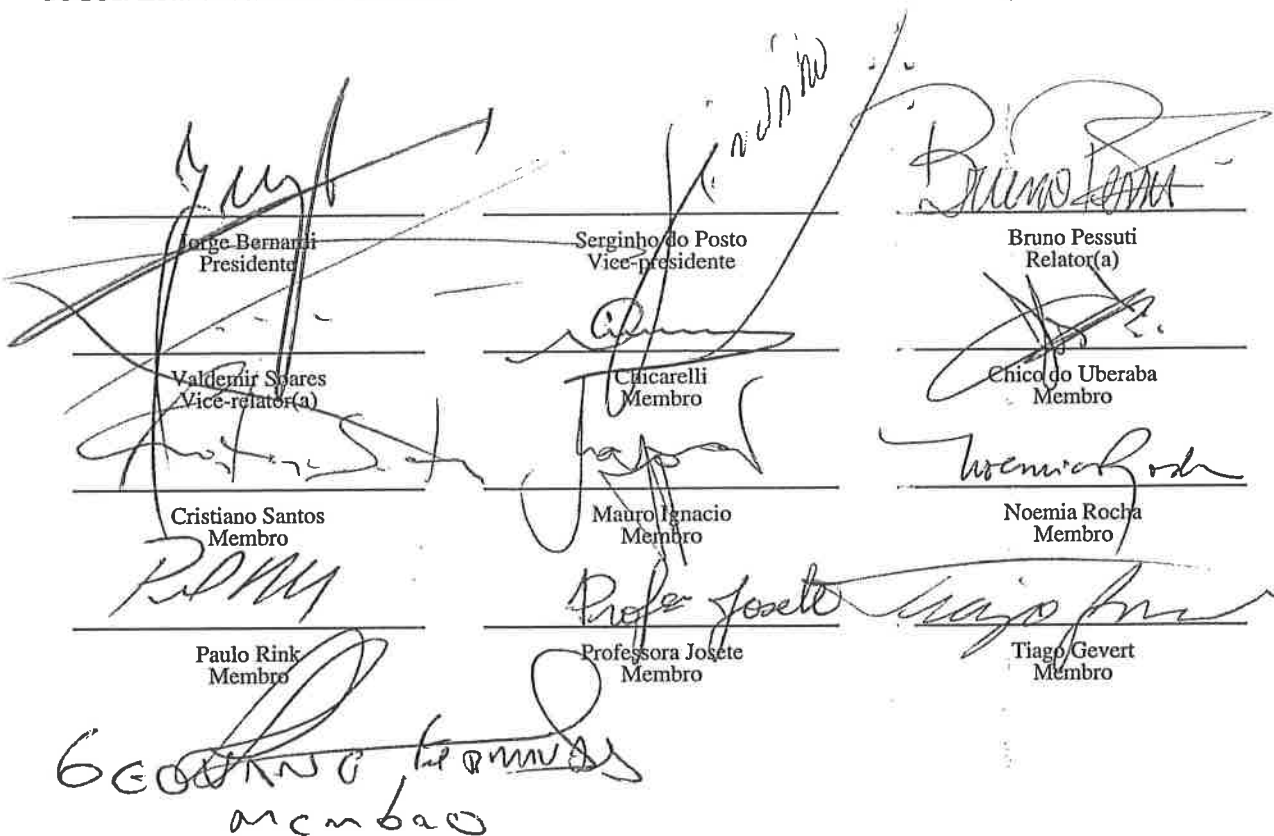 Bruno
Jorge Bernardi
Presidente
Serginho do Posto
Vice-presidente
Bruno Pessuti
Relator(a)
Valdemir Soares
Vice-relator(a)
Chicarelli
Membro
Chico do Uberaba
Membro
Noemia Rocha
Cristiano Santos
Membro
Mauro Ignacio
Membro
Noemia Rocha
Membro
Profa Josete
Tiago
Paulo Rink
Membro
Professora Josete
Membro
Tiago Gevert
Membro